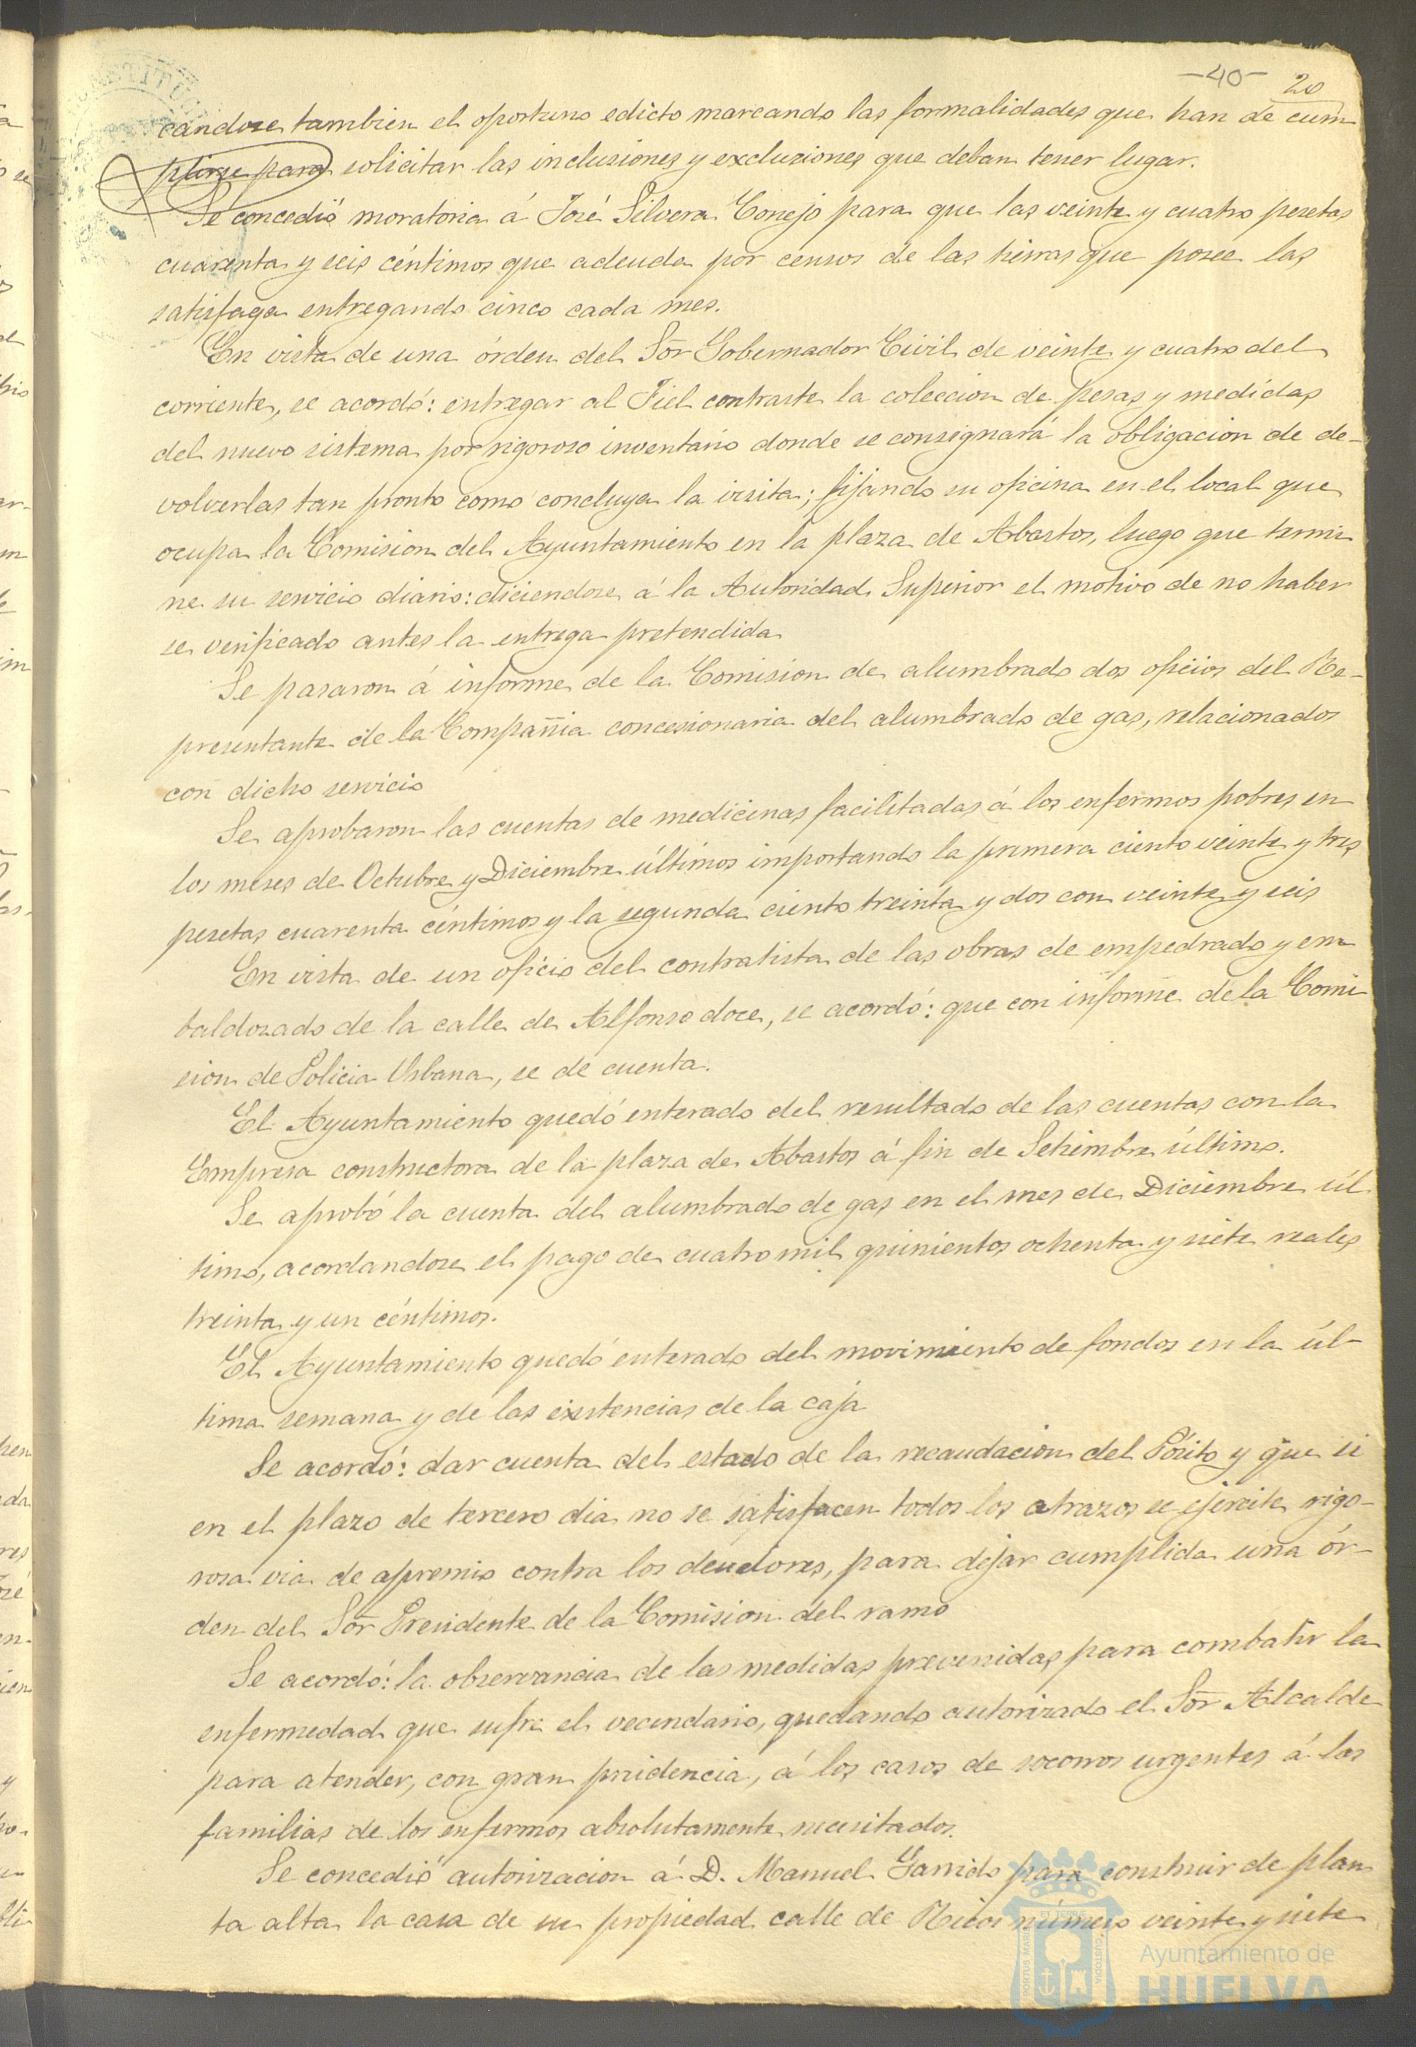 -40- 20
candose tambien el oportuno edicto marcando las formalidades que han de cum
plirse para solicitar las inclusiones y exclusiones que deban tener lugar.
Se concedió moratoria á José Silvera Conejo para que las veinte y cuatro pesetas
cuarenta y seis céntimos que adeuda por censos de las tierras que posee las
satisfaga entregando cinco cada mes.
En vista de una órden del Sor Gobernador Civil de veinte y cuatro del
corriente, se acordó: entregar al Fiel contraste la coleccion de pesas y medidas
del nuevo sistema por rigoroso inventario donde se consignará la obligacion de de-
volverlas tan pronto como concluya la visita; fijando su oficina en el local que
ocupa la Comision del Ayuntamiento en la plaza de Abastos, luego que termi
ne su servicio diario: diciendose á la Autoridad Superior el motivo de no haber
se verificado antes la entrega pretendida
Se pasaron á informe de la Comision de alumbrado dos oficios del Re-
presentante de la Compañia concesionaria del alumbrado de gas, relacionados
con dicho servicio
Se aprobaron las cuentas de medicinas facilitadas á los enfermos pobres en
los meses de Octubre y Diciembre últimos importando la primera ciento veinte y tres
pesetas cuarenta céntimos y la segunda ciento treinta y dos con veinte y seis
En vista de un oficio del contratista de las obras de empedrado y em
baldosado de la calle de Alfonso doce, se acordó: que con informe de la Comi
sion de Policia Urbana, se de cuenta.
El Ayuntamiento quedó enterado del resultado de las cuentas con la
Empresa constructora de la plaza de Abastos á fin de Setiembre último.
Se aprobó la cuenta del alumbrado de gas en el mes de Diciembre úl
timo, acordandose el pago de cuatro mil quinientos ochenta y siete reales
treinta y un céntimos.
El Ayuntamiento quedó enterado del movimiento de fondos en la úl-
tima semana y de las existencias de la caja
Se acordó: dar cuenta del estado de la recaudacion del Pósito y que si
en el plazo de tercero dia no se satisfacen todos los atrazos se ejercite rigo-
rosa via de apremio contra los deudores, para dejar cumplida una ór-
den del Sor Presidente de la Comision del ramo
Se acordó: la observancia de las medidas prevenidas para combatir la
enfermedad que sufre el vecindario, quedando autorizado el Sor Alcalde
para atender, con gran prudencia, á los casos de socorros urgentes á las
familias de los enfermos absolutamente necesitados.
Se concedió autorizacion á D. Manuel Garrido para construir de plan
ta alta la casa de su propiedad calle de Ricos número veinte y siete
Ayuntamiento de
HUELVA